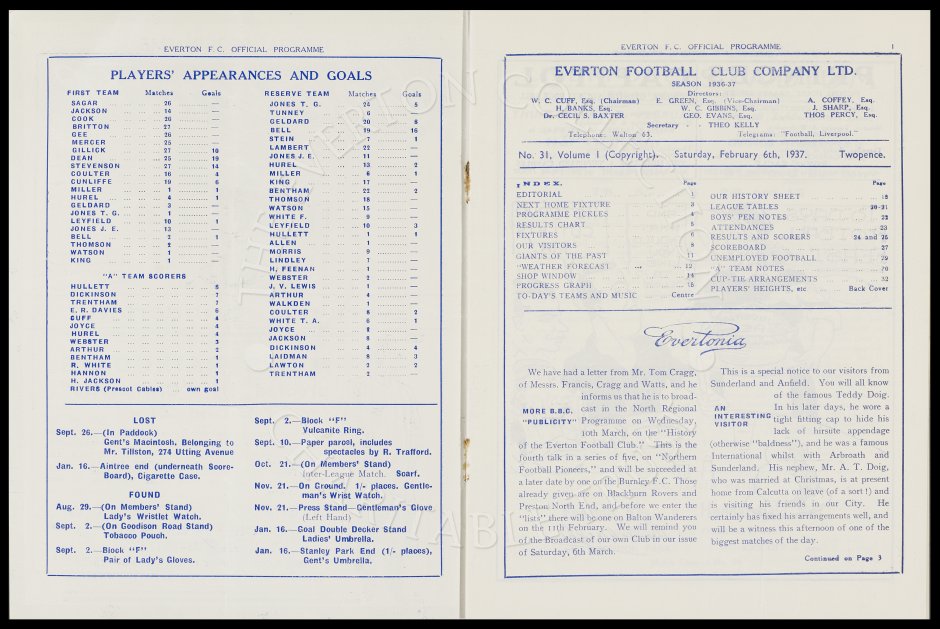 EVERTON F. C. OFFICIAL PROGRAMME
PLAYERS' APPEARANCES AND GOALS
FIRST TEAM Matches Goals
SAGAR 26 —
JACKSON 14 —
COOK 26 —
BRITTON 27 —
GEE 26 —
MERCER 25 —
GILLICK 27 10
DEAN 25 19
STEVENSON 27 14
COULTER 16 4
CUNLIFFE 19 6
MILLER 1 1
HUREL 4 1
GELDARD 3 —
JONES T. G. 1 —
LEYFIELD 10 1
JONES J. E. 13 —
BELL 2 1
THOMSON 2 —
WATSON 1 —
KING 1 —
"A" TEAM SCORERS
HULLETT
DICKINSON 7
TRENTHAM 7
E. R. DAVIES 6
CUFF 4
JOYCE 4
HUREL 4
WEBSTER 3
ARTHUR 2
BENTHAM 1
R. WHITE 1
HANNON 1
H. JACKSON 1
RIVERS (Prescot Cables) own goal
RESERVE TEAM Matches Goals
JONES T. G. 24 5
TUNNEY 6 —
GELDARD 20 8
BELL 19 16
STEIN 7 1
LAMBERT 22 —
JONES J. E. 11 —
HUREL 13 2
MILLER 6 1
KING 17 —
BENTHAM 22 2
THOMSON 18 —
WATSON 15 —
WHITE F. 9 —
LEYFIELD 10 3
HULLETT 1 1
ALLEN 1 —
MORRIS 9 —
LINDLEY 7 —
H. FEENAN 1 —
WEBSTER 2 —
J. V. LEWIS 1 —
ARTHUR 4 —
WALKDEN 1 —
COULTER 8 2
WHITE T. A. 6 1
JOYCE —
JACKSON 8 —
DICKINSON 4 4
LAIDMAN 8 3
LAWTON 2 2
TRENTHAM 2 —
LOST
Sept. 26.—(In Paddock)
Gent's Macintosh, Belonging to
Mr. Tillston, 274 Utting Avenue
Jan. 16.—Aintree end (underneath Score-
Board), Cigarette Case.
FOUND
Aug. 29.—(On Members' Stand)
Lady's Wristlet Watch.
Sept. 2.—(On Goodison Road Stand)
Tobacco Pouch.
Sept. 2.—Block "F"
Pair of Lady's Gloves.
Sept. 2.—Block "F"
Vulcanite Ring.
Sept. 10.—Paper parcel, includes
spectacles by R. Trafford.
Oct. 21.—(On Members' Stand)
Inter-League Match. Scarf.
Nov. 21.—On Ground. 1/- places. Gentle-
man's Wrist Watch.
Nov. 21.—Press Stand—Gentleman's Glove
(Left Hand)
Jan. 16.—Goal Double Decker Stand
Ladies' Umbrella.
Jan. 16.—Stanley Park End (1/- places),
Gent's Umbrella.
EVERTON F. C. OFFICIAL PROGRAMME 1
EVERTON FOOTBALL CLUB COMPANY LTD.
SEASON 1936-37
Directors:
W. C. CUFF, Esq. (Chairman) E. GREEN, Esq. (Vice-Chairman) A. COFFEY, Esq.
H. BANKS, Esq. W. C. GIBBINS, Esq. J. SHARP, Esq.
Dr. CECIL S. BAXTER GEO. EVANS, Esq. THOS PERCY, Esq.
Secretary - - THEO KELLY
Telephone: Walton 63. Telegrams: "Football, Liverpool."
No. 31, Volume 1 (Copyright). Saturday, February 6th, 1937. Twopence.
INDEX. Page
EDITORIAL 1
NEXT HOME FIXTURE 3
PROGRAMME PICKLES 4
RESULTS CHART 5
FIXTURES 6
OUR VISITORS 8
GIANTS OF THE PAST 11
"WEATHER FORECAST 12
SHOP WINDOW 14
PROGRESS GRAPH 15
TO-DAY'S TEAMS AND MUSIC Centre
Page
OUR HISTORY SHEET 18
LEAGUE TABLES 20-21
BOYS' PEN NOTES 22
ATTENDANCES 23
RESULTS AND SCORERS 24 and 25
SCOREBOARD 27
UNEMPLOYED FOOTBALL 29
"A" TEAM NOTES 30
CUP-TIE ARRANGEMENTS 32
PLAYERS' HEIGHTS, etc Back Cover
Evertonia
We have had a letter from Mr. Tom Cragg,
of Messrs. Francis, Cragg and Watts, and he
informs us that he is to broad-
MORE B.B.C. cast in the North Regional
"PUBLICITY" Programme on Wednesday,
10th March, on the "History
of the Everton Football Club." This is the
fourth talk in a series of five, on "Northern
Football Pioneers," and will be succeeded at
a later date by one on the Burnley F.C. Those
already given are on Blackburn Rovers and
Preston North End, and before we enter the
"lists" there will be one on Bolton Wanderers
on the 11th February. We will remind you
of the Broadcast of our own Club in our issue
of Saturday, 6th March.
This is a special notice to our visitors from
Sunderland and Anfield. You will all know
of the famous Teddy Doig.
AN In his later days, he wore a
INTERESTING tight fitting cap to hide his
VISITOR lack of hirsute appendage
(otherwise "baldness"), and he was a famous
International whilst with Arbroath and
Sunderland. His nephew, Mr. A. T. Doig,
who was married at Christmas, is at present
home from Calcutta on leave (of a sort!) and
is visiting his friends in our City. He
certainly has fixed his arrangements well, and
will be a witness this afternoon of one of the
biggest matches of the day.
Continued on Page 3